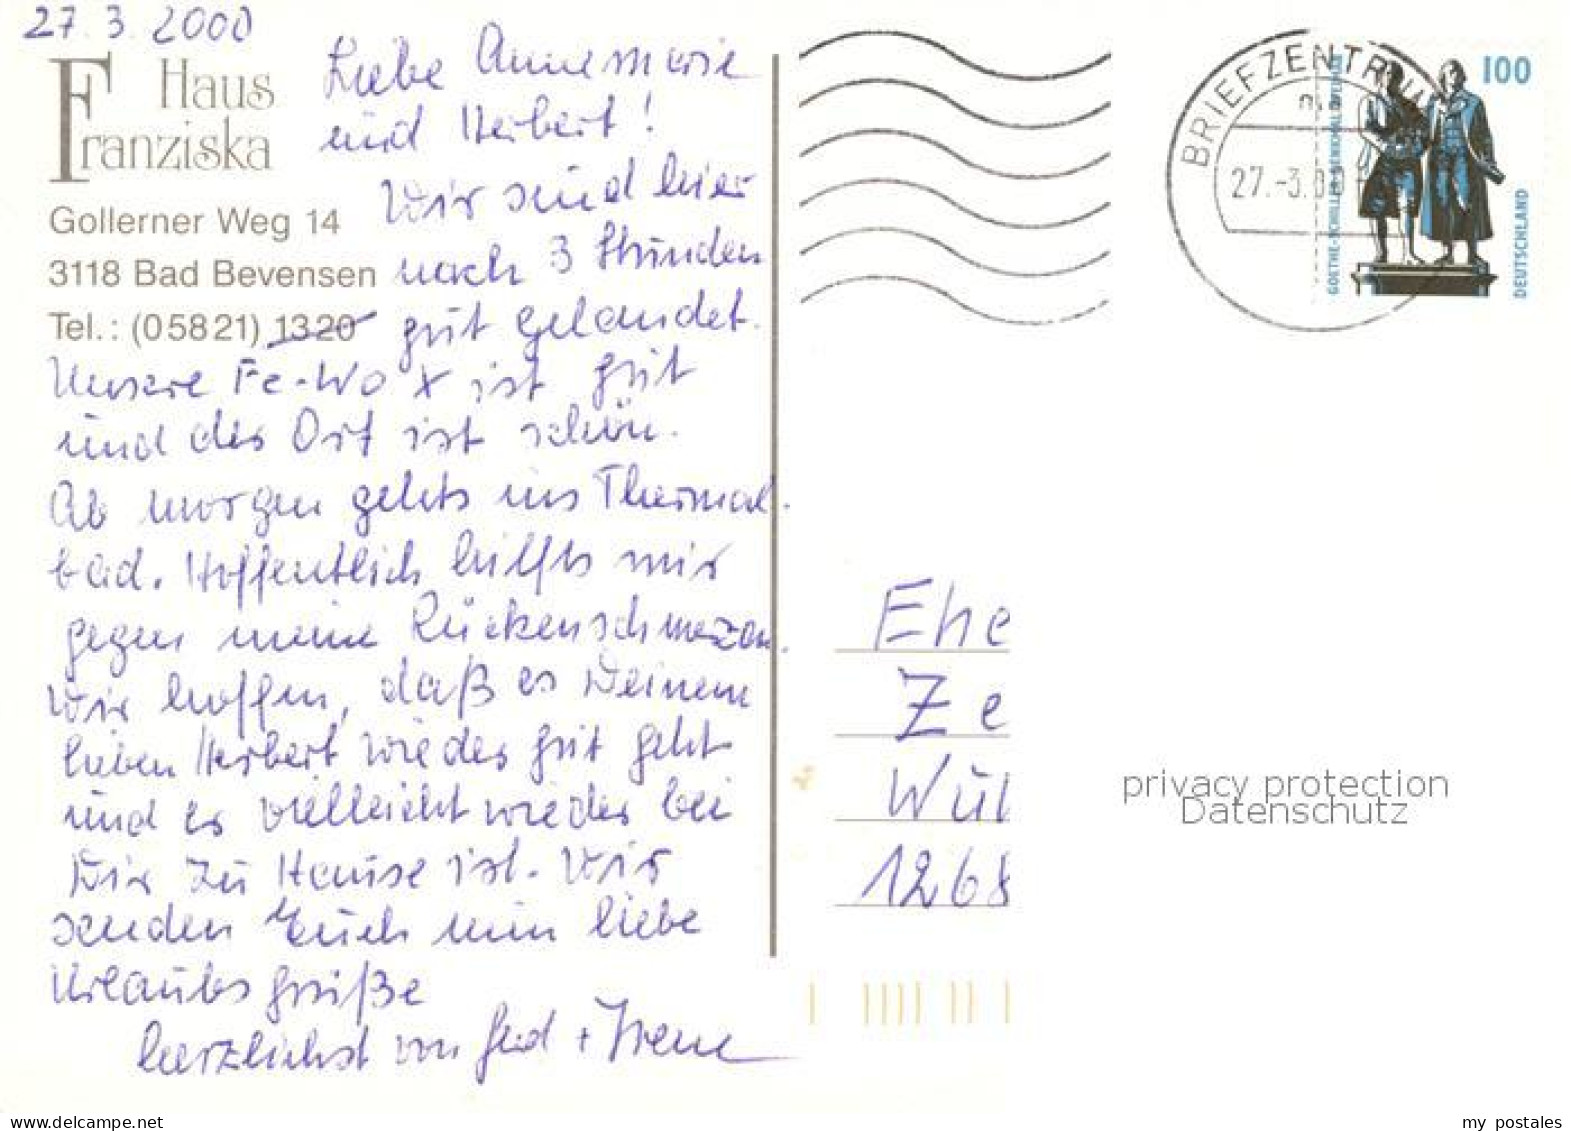 27.3.2000
Haus
Franziska
Gollerner Weg 14
3118 Bad Bevensen
Tel.: (05821) 1320
Liebe Annemarie
und Herbert!
Wir sind hier
nach 3 Stunden
gut gelandet.
Unsere Fe-Wo x ist gut
und der Ort ist schön.
Ab morgen gehts ins Thermal-
bad. Hoffentlich hilfts mir
gegen meine Rückenschmerzen.
Wir hoffen, daß es Deinem
lieben Herbert wieder gut geht
und er vielleicht wieder bei
Dir zu Hause ist. Wir
senden Euch nun liebe
Urlaubsgrüße
herzlichst von + Irene
BRIEFZENTRUM
27.-3.0
100
GOETHE-SCHILLER-DENKMAL
DEUTSCHLAND
Ehe
Ze
Wül
1268
privacy protection
Datenschutz
www.delcampe.net
my_postales